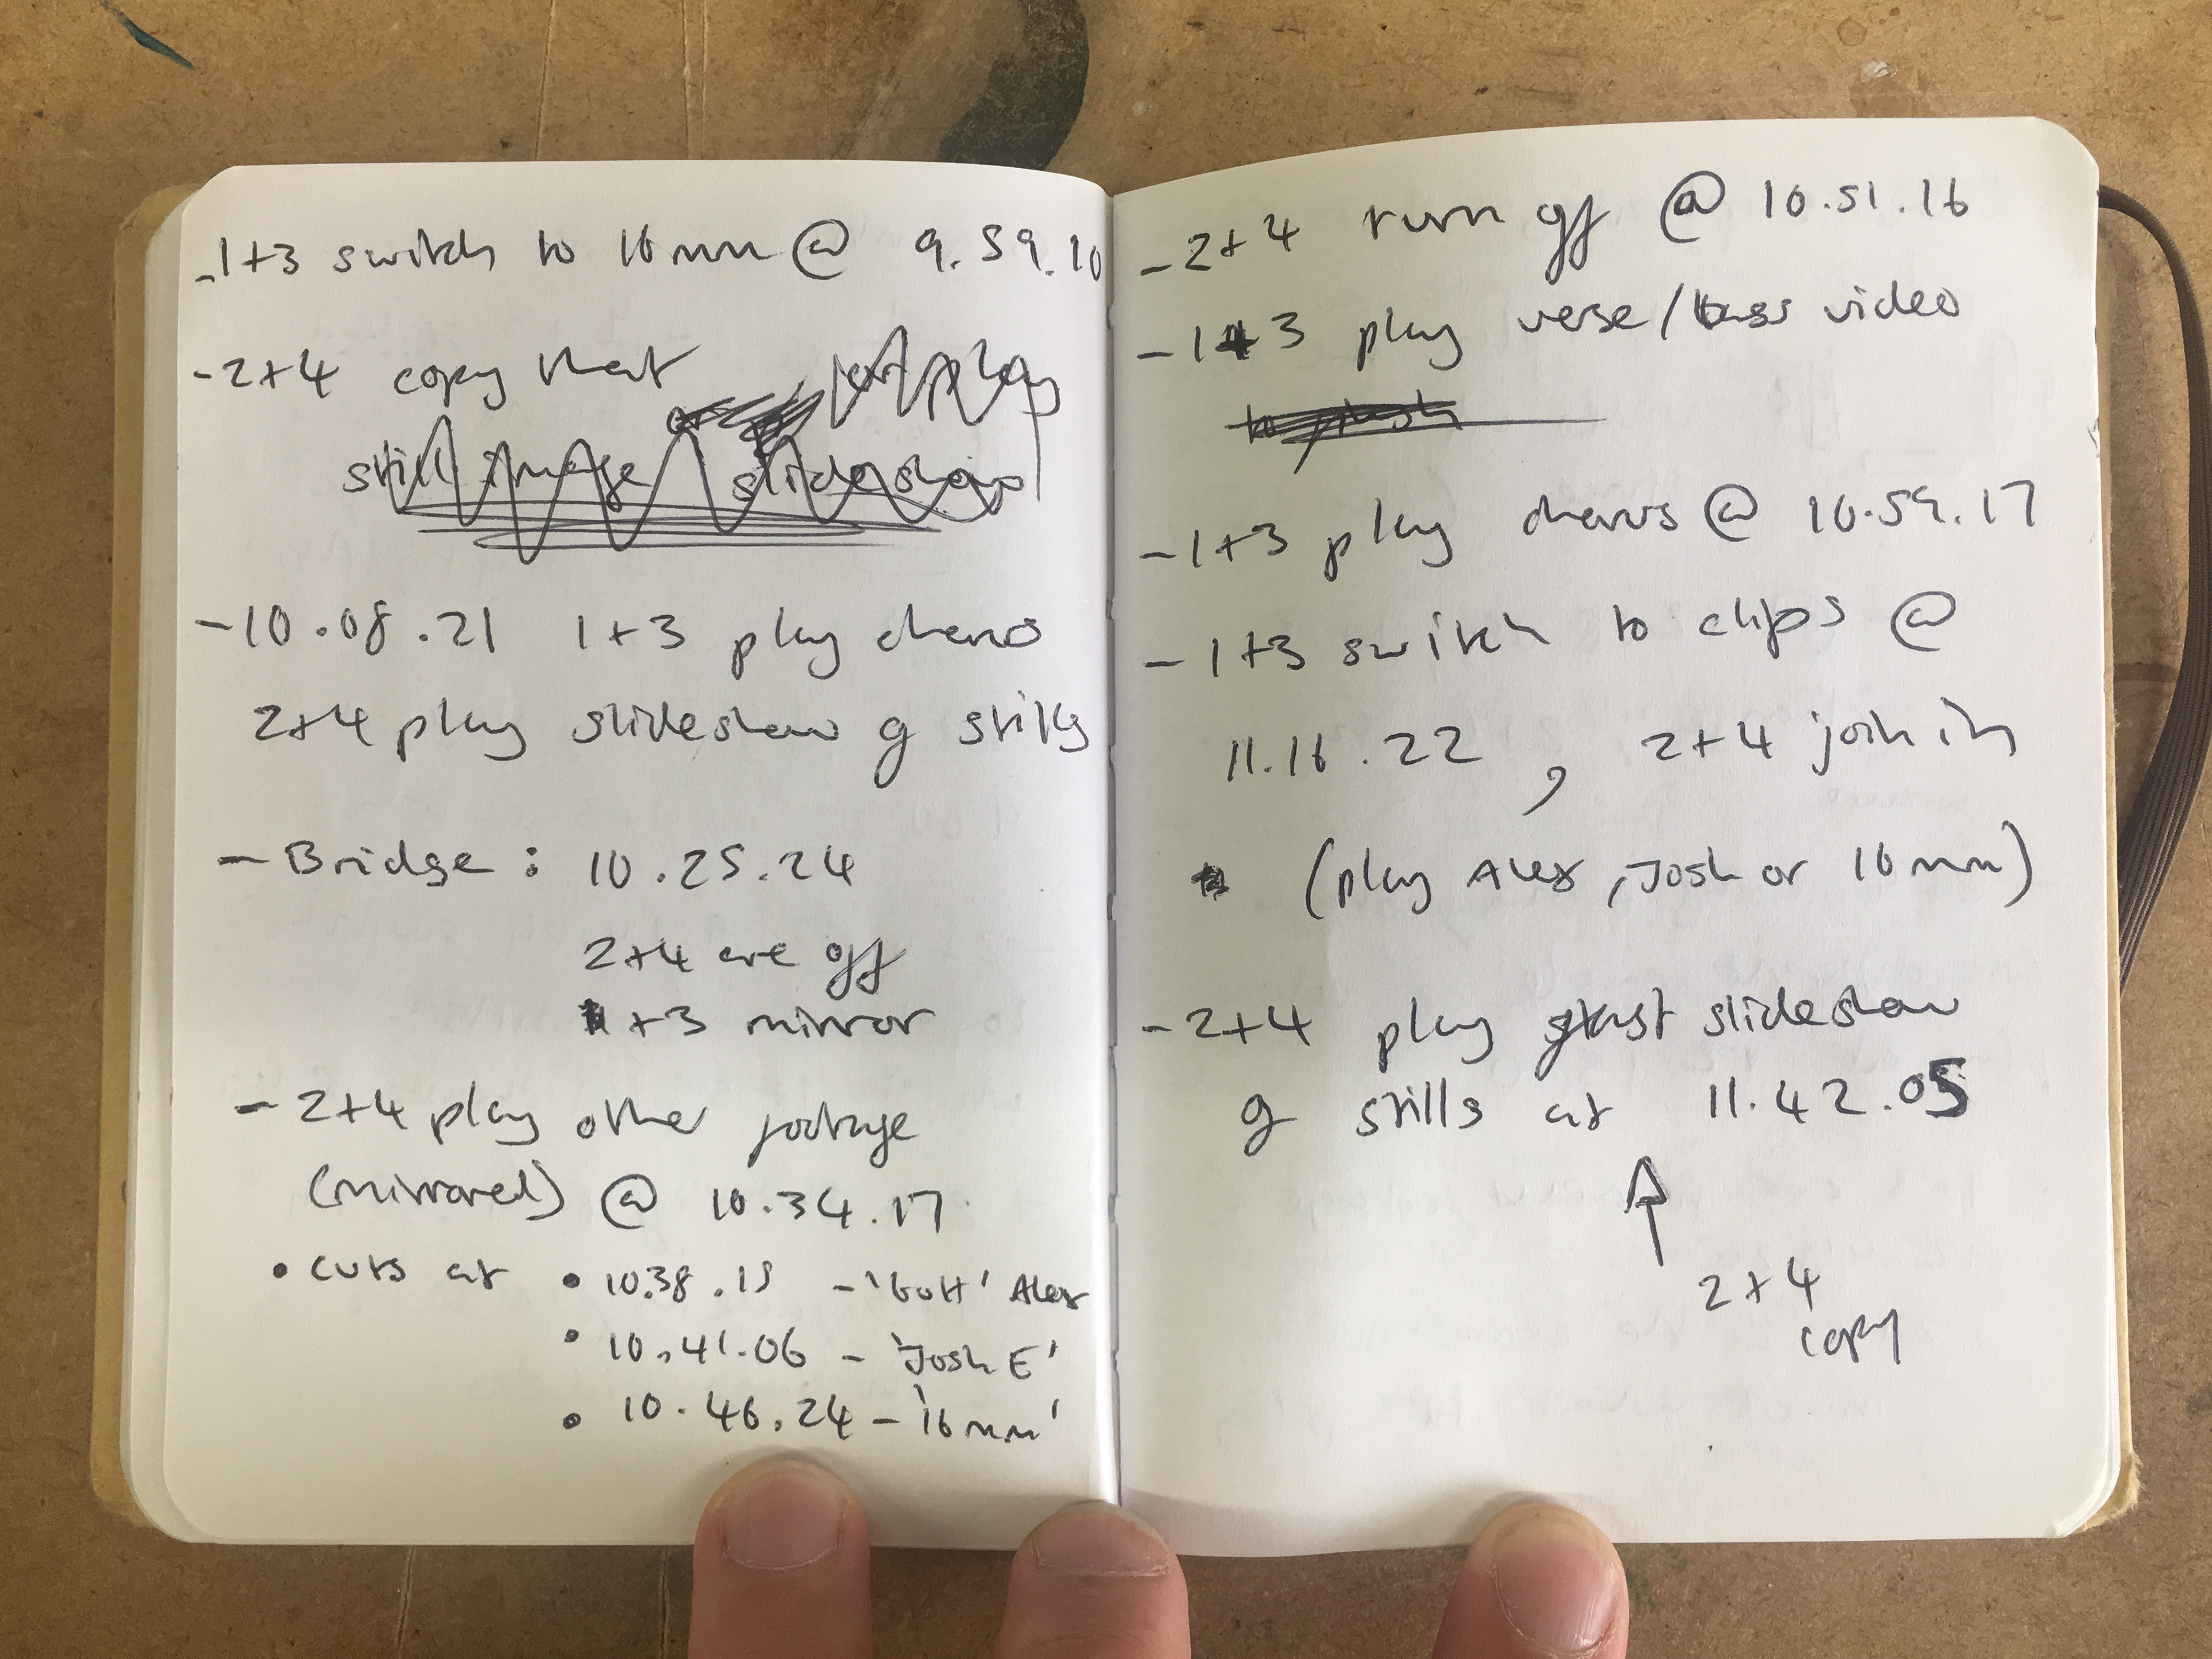 - 1+3 switch to 16mm @ 9.59.10
- 2+4 copy that
still image slideshow
- 10.08.21 1+3 play chorus
2+4 play slideshow of stills
- Bridge : 10.25.24
2+4 are off
1+3 mirror
- 2+4 play other footage
(mirrored) @ 10.34.17
• cuts at • 10.38.15 - 'GoH' Alex
• 10.41.06 - 'Josh E'
• 10.46.24 - '16mm'
- 2+4 turn off @ 10.51.16
- 1+3 play verse/bass video
- 1+3 play chorus @ 10.59.17
- 1+3 switch to clips @
11.16.22 , 2+4 join in
(play Alex, Josh or 16mm)
- 2+4 play slideshow
of stills at 11.42.05
2+4
copy